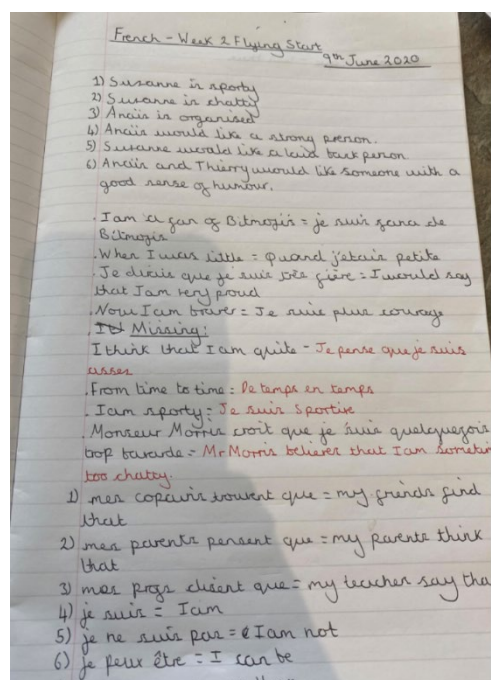 French - Week 2 Flying Start
9th June 2020
1) Susanne is sporty
2) Susanne is chatty
3) Anaïs is organised
4) Anaïs would like a strong person.
5) Susanne would like a laid back person
6) Anaïs and Thierry would like someone with a
good sense of humour.
. I am a fan of Bitmojis = je suis fana de
Bitmojis
. When I was little = Quand j'etais petite
. Je dirais que je suis très fière = I would say
that I am very proud
. Now I am braver = Je suis plus courage
Missing:
I think that I am quite - Je pense que je suis
assez
. From time to time = De temps en temps
. I am sporty = Je suis Sportive
. Monseur Morris croit que je suis quelquefois
trop bavarde = Mr Morris believes that I am
too chatty.
1) mes copains trouvent que = my friends find
that
2) mes parents pensent que = my parents think
that
3) mes profs disent que = my teacher say tha
4) je suis = I am
5) je ne suis pas = I am not
6) je peux être = I can be